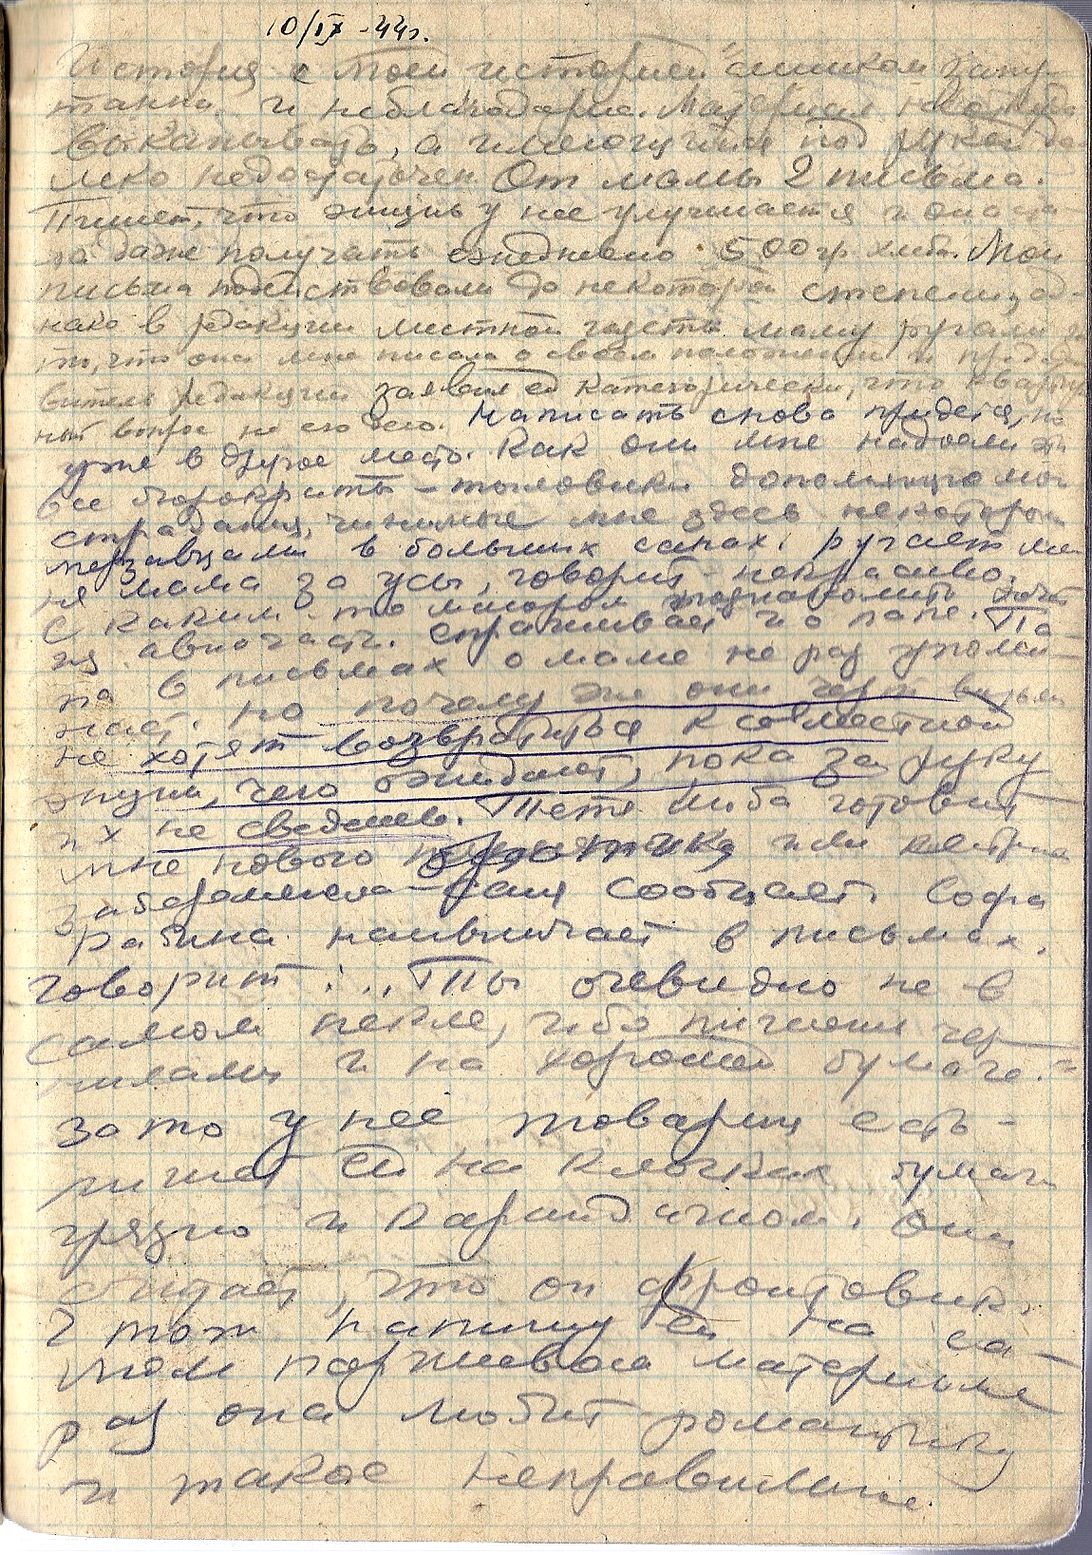 10/IX - 44г.
История с моей историей слишком запу-
танна и неблагодарна. Материал неоткуда
выкапывать, а имеющийся под рукой да-
леко недостаточен. От мамы 2 письма.
Пишет, что жизнь у нее улучшается и она ста-
ла даже получать ежедневно 500 гр. хлеба. Мои
письма подействовали до некоторой степени, од-
нако в редакции местной газеты маму ругали за
то, что она мне писала о своем положении и предста-
витель редакции заявил ей категорически, что квартир
ный вопрос не его дело. Написать снова придется, но
уже в другое место. Как они мне надоели эти
все бюрократы - тыловики дополняющие мои
страдания, чинимые мне здесь некоторыми
мерзавцами в больших чинах. Ругает ме
ня мама за усы, говорит - некрасиво. Хочет
с каким-то майором познакомить
из авиачасти. Спрашивает и о папе. Па-
па в письмах о маме не раз упоми-
нает. Но почему же они
не хотят возвратиться к совместной
жизни, чего ожидают, пока за руку
их не сведешь. Тетя Люба готовит
мне нового братика или сестрицу
забеременела - папа сообщает. Софа
Рабина наивничает в письмах.
Говорит: „Ты очевидно не в
самом пекле, ибо пишешь чер-
нилами и на хорошей бумаге."
Зато у нее товарищ есть -
пишет ей на клочках бумаги
грязно и карандашом. Она
считает, что он фронтовик.
Я тож напишу ей на са-
мом паршивом материале
раз она любит романтику
и такое неправильное.